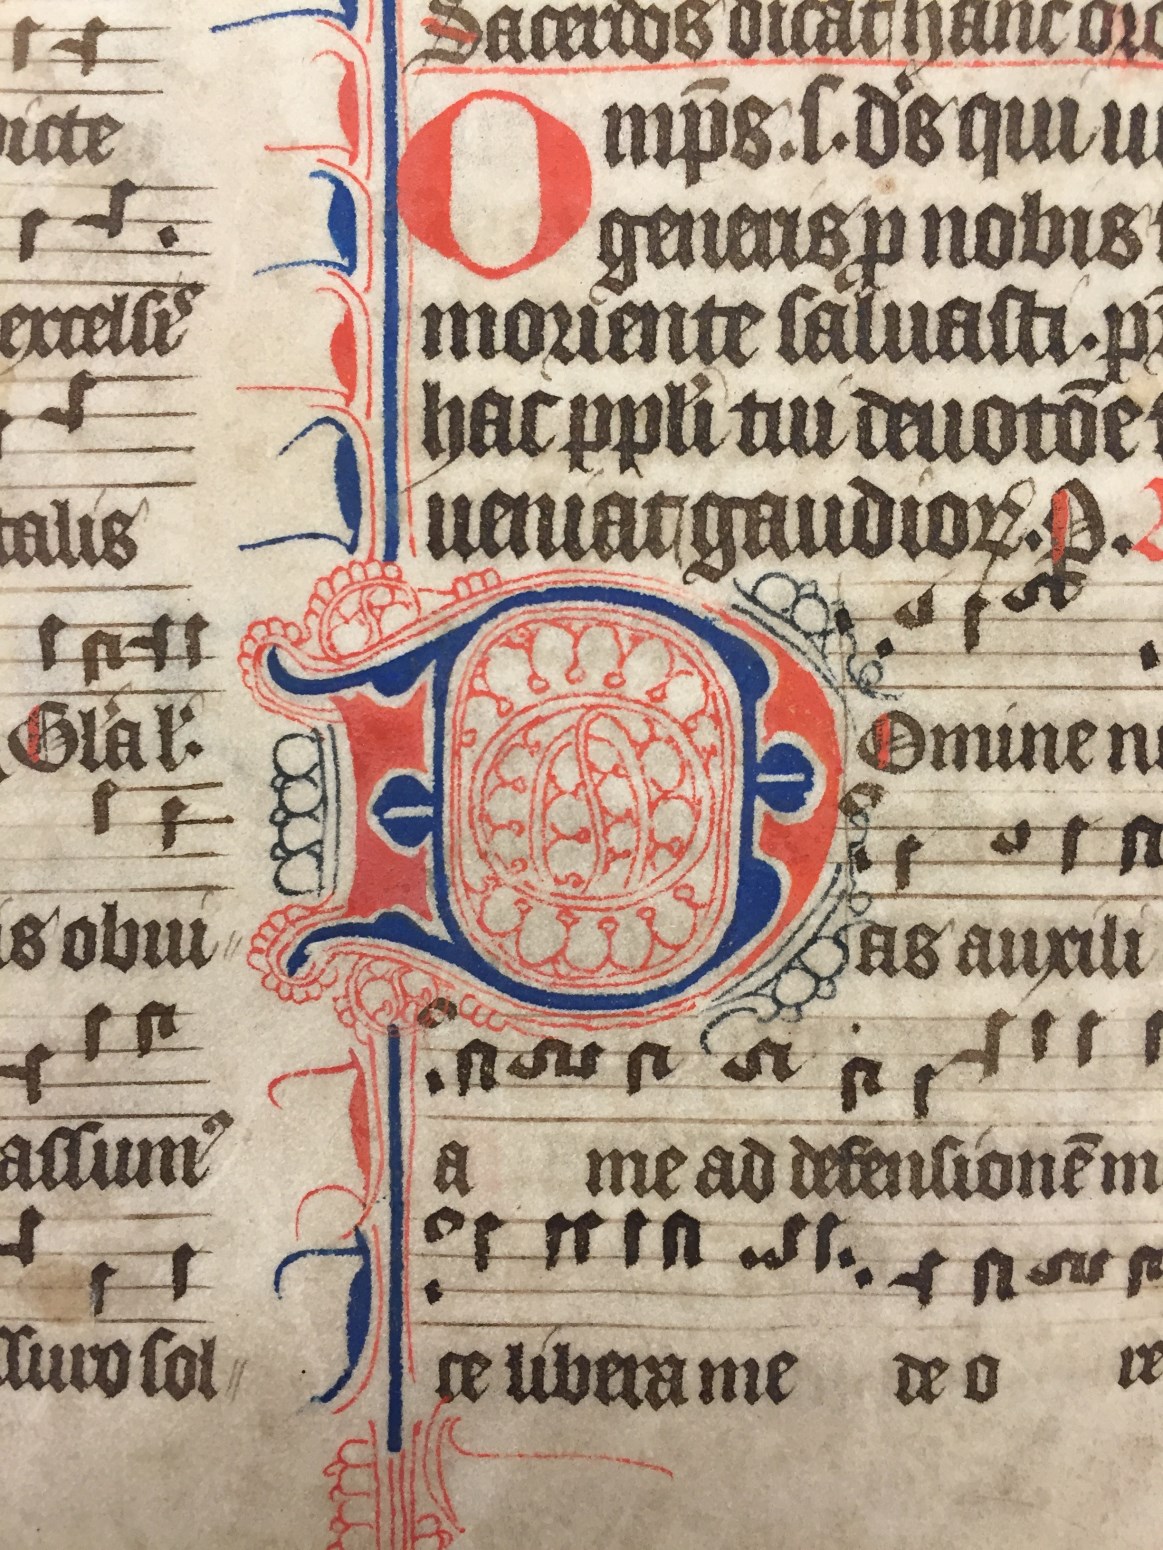 dicte
excelsis
talis
Gl'a l'.
is obui
assum9
suro sol
Sacerdos dicat hanc oro
Omp̄s.s.d's qui ui
generis p nobis
moriente saluasti. pr
hac ppl'i tui deuotōe
ueniat gaudioꝝ. P.
D Omine ne
as auxili
a me ad defensionē m
ce libera me de o re